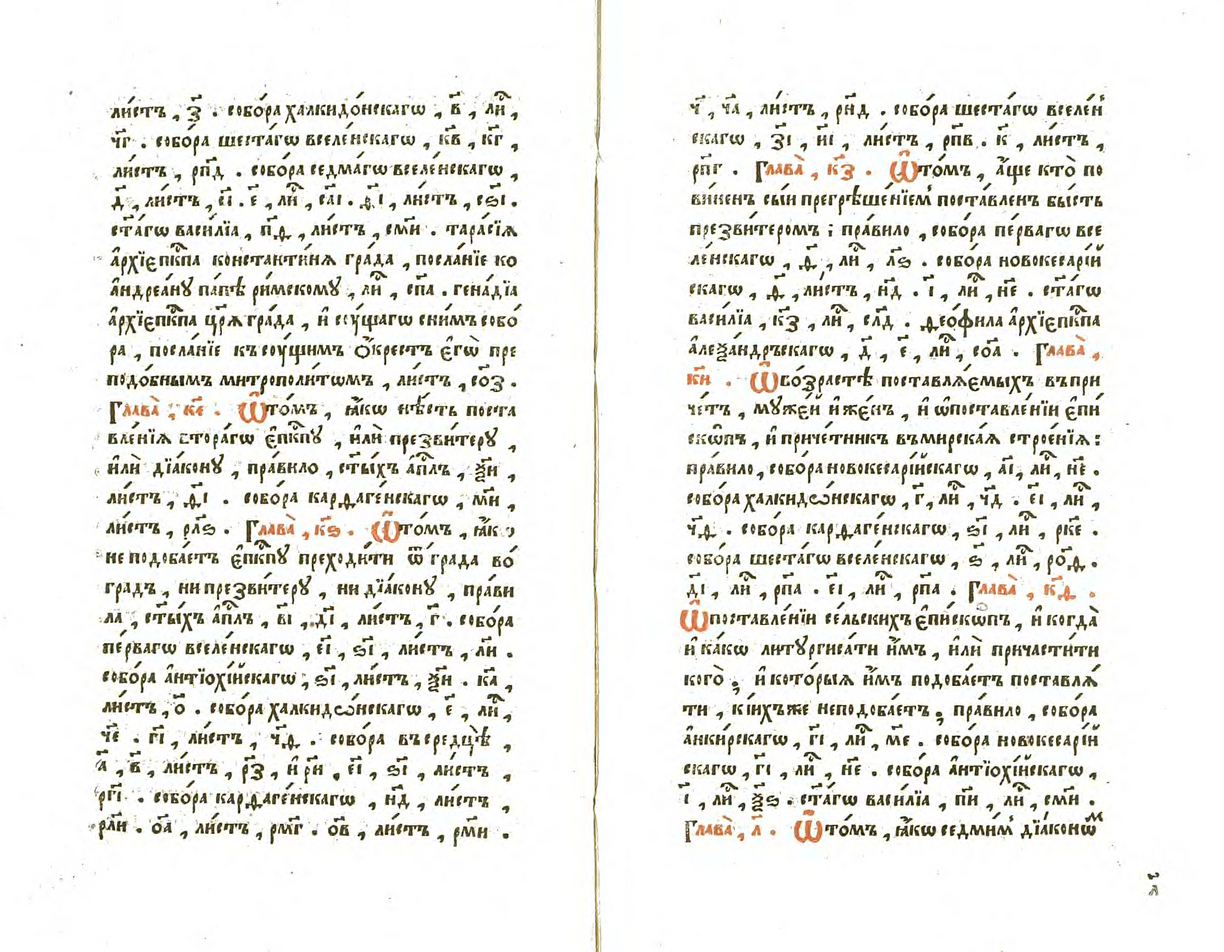 ли́стъ , з҃ . собо́ра халкидо́нскагѡ , в҃ , ли҃ ,
чг҃ . собо́ра шеста́гѡ вселе́нскагѡ , кв҃ , кг҃ ,
ли́стъ , рпд҃ . собо́ра седма́гѡ вселе́нскагѡ ,
д҃ , ли́стъ , сі҃ . е҃ , ли҃ , саі҃ . ѳі҃ , ли́стъ , сѕі҃ .
ст҃а́гѡ васи́лїа , пѳ҃ , ли́стъ , сми҃ . тара́сїѧ
а҆рхїєпⷭ҇кпа константи́нѧ гра́да , посла́нїе ко
а҆ндреа́нꙋ па́пѣ ри́мскомꙋ , ли҃ , спа҃ . гена́дїа
а҆рхїєпⷭ҇кпа цр҃ѧ гра́да , и҆ сꙋ́щагѡ сни́мъ собо́
ра , посла́нїе къ сꙋ́щимъ ѻ҆́крестъ є҆гѡ̀ пре
подо́бнымъ митрополи́тѡмъ , ли́стъ , соз҃ .
Глава̀ , ке҃ . Ѡ҆ то́мъ , ꙗ҆́кѡ нѣ́сть поста
вле́нїѧ втора́гѡ є҆пⷭ҇кпꙋ , и҆лѝ презви́терꙋ ,
и҆лѝ дїа́конꙋ , пра́вило , ст҃ы́хъ а҆пⷭ҇лъ , ѯи҃ ,
ли́стъ , ѳі҃ . собо́ра карѳаге́нскагѡ , ми҃ ,
ли́стъ , рлѕ҃ . Глава̀ , кѕ҃ . Ѡ҆ то́мъ , ꙗ҆́кѡ
не подоба́етъ є҆пⷭ҇кпꙋ преходи́ти ѿ гра́да во́
градъ , ни презви́терꙋ , ни дїа́конꙋ , прави
ла , ст҃ы́хъ а҆пⷭ҇лъ , ві҃ , ді҃ , ли́стъ , г҃ . собо́ра
пе́рвагѡ вселе́нскагѡ , еі҃ , ѕі҃ , ли́стъ , ли҃ .
собо́ра а҆нтїохі́йскагѡ , ѕі҃ , ли́стъ , ѯи҃ . ка҃ ,
ли́стъ , о҃ . собо́ра халкидѡ́нскагѡ , е҃ , ли҃ ,
че҃ . гі҃ , ли́стъ , чѳ҃ . собо́ра въ средцѣ̀ ,
а҃ , в҃ , ли́стъ , рз҃ , и҆ ри҃ , еі҃ , ѕі҃ , ли́стъ ,
ргі҃ . собо́ра карѳаге́нскагѡ , нд҃ , ли́стъ ,
рли҃ . оа҃ , ли́стъ , рмг҃ . ов҃ , ли́стъ , рми҃ .
ч҃ , ча҃ , ли́стъ , рнд҃ . собо́ра шеста́гѡ вселе́н
скагѡ , зі҃ , иі҃ , ли́стъ , рпв҃ . к҃ , ли́стъ ,
рпг҃ . Глава̀ , кз҃ . Ѡ҆ то́мъ , а҆́ще кто̀ по
ви́ненъ сы́и прегрѣше́нїемъ поста́вленъ бы́сть
презви́теромъ ; пра́вило , собо́ра пе́рвагѡ все
ле́нскагѡ , ѳ҃ , ли҃ , лѕ҃ . собо́ра новокесарі́й
скагѡ , ѳ҃ , ли́стъ , нд҃ . і҃ , ли҃ , не҃ . ст҃а́гѡ
васи́лїа , кз҃ , ли҃ , слд҃ . ѳео́фила а҆рхїєпⷭ҇кпа
але҆ѯа́ндрьскагѡ , д҃ , е҃ , ли҃ , соа҃ . Глава̀ ,
ки҃ . Ѡ҆ во́зрастѣ поставлѧ́емыхъ въ при
че́тъ , мꙋже́й и҆ же́нъ , и҆ ѡ҆ поставле́нїи є҆пи́
скѡпъ , и҆ приче́тникъ въ мирска́ѧ строе́нїѧ :
пра́вило , собо́ра новокесарі́йскагѡ , аі҃ , ли҃ , не҃ .
собо́ра халкидѡ́нскагѡ , г҃ , ли҃ , чд҃ . еі҃ , ли҃ ,
чѳ҃ . собо́ра карѳаге́нскагѡ , ѕі҃ , ли҃ , рке҃ .
собо́ра шеста́гѡ вселе́нскагѡ , ѕ҃ , ли҃ , роѳ҃ .
ді҃ , ли҃ , рпа҃ . еі҃ , ли҃ , рпа҃ . Глава̀ , кѳ҃ .
Ѡ҆ поставле́нїи се́льскихъ є҆пи́скѡпъ , и҆ когда̀
и҆ ка́кѡ литꙋргиса́ти и҆̀мъ , и҆лѝ причасти́ти
кого̀ ; и҆ кото́рыѧ и҆̀мъ подоба́етъ поставлѧ́
ти , кі́ихъ же неподоба́етъ ; пра́вило , собо́ра
а҆нки́рскагѡ , гі҃ , ли҃ , ме҃ . собо́ра новокесарі́й
скагѡ , гі҃ , ли҃ , не҃ . собо́ра а҆нтїохі́йскагѡ ,
і҃ , ли҃ , ѯѕ҃ . ст҃а́гѡ васи́лїа , пи҃ , ли҃ , сми҃ .
Глава̀ , л҃ . Ѡ҆ то́мъ , ꙗ҆́кѡ седми́мъ дїа́конѡⷨ